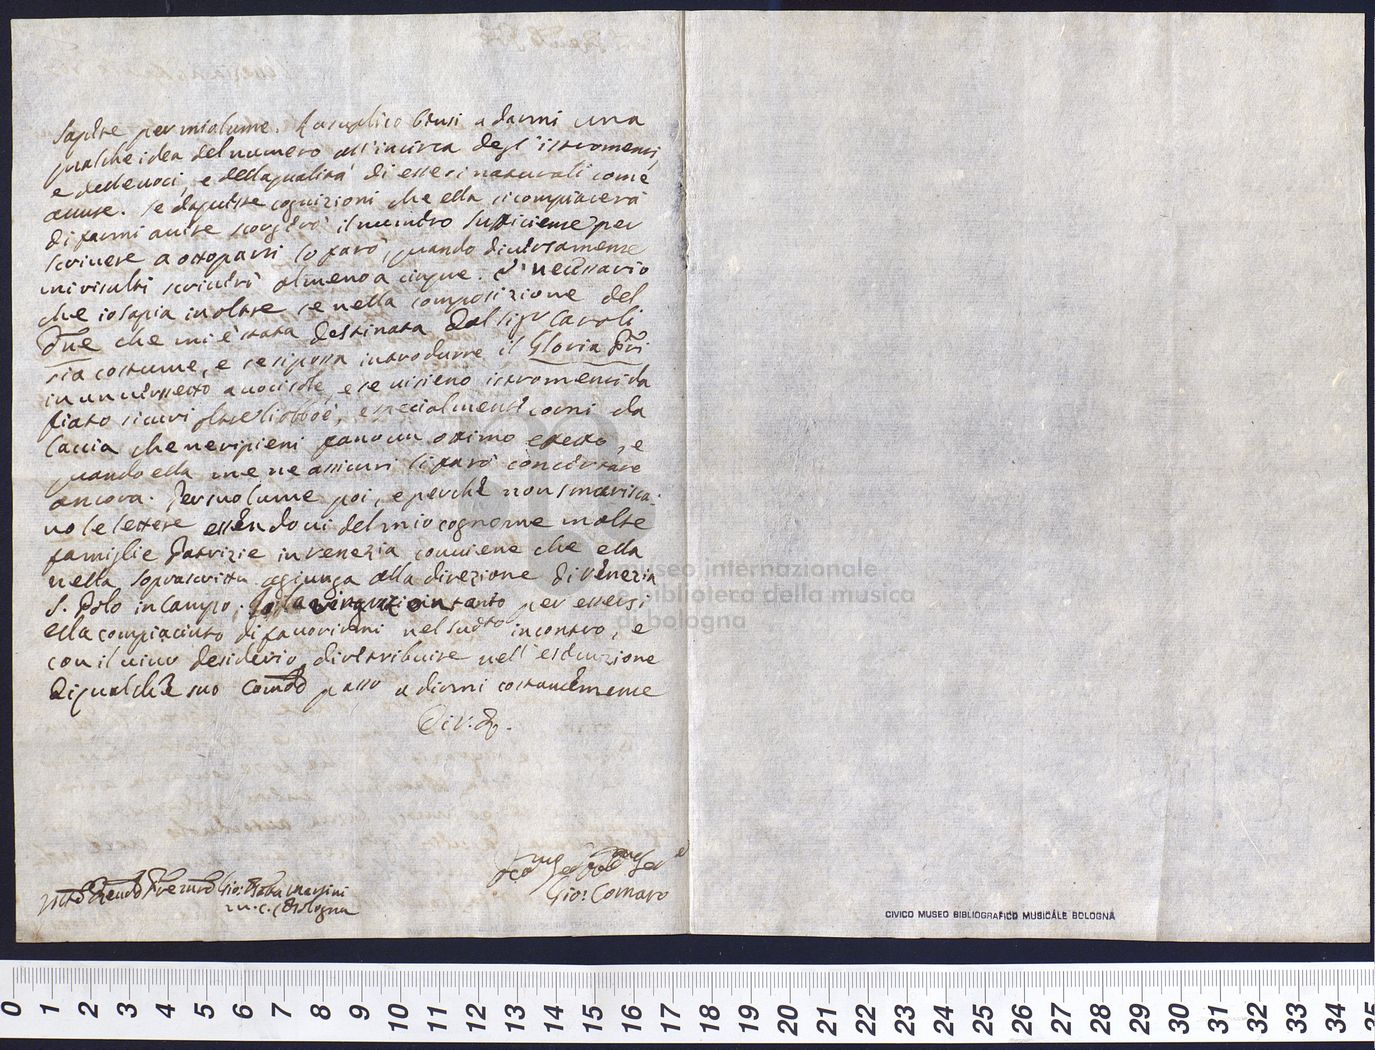 sapere per mio lume. La supplico bensi a darmi una
qualche idea del numero all'incirca degl'istromenti,
e delle voci, e della qualità di essi si naturali come
acute. Se da queste cognizioni che ella si compiacerà
di farmi avere scorgerò il numero sufficiente per
scrivere a otto parti lo farò, quando diversamente
mi risulti scriverò almeno a cinque. È necessario
che io sapia inoltre se nella composizione del
Dne che mi è stata destinata dal Sigr Caroli
sia costume, e se si possa introdurre il Gloria Pri
in un versetto a voci sole, e se vi sieno istromenti da
fiato sicuri oltre li obboè, e specialmente corni da
Caccia che ne ripieni fano un ottimo effetto, e
quando ella me ne assicuri li farò concertare
ancora. Per suo lume poi, e perchè non smarisca-
no le lettere essendovi del mio cognome molte
famiglie Patrizie in Venezia conviene che ella
nella soprascritta agiunga alla direzione di Venezia
S. Polo in Campo. tanto per essersi
ella compiaciuto di favorirmi nel sudto incontro, e
con il vivo desiderio di retribuire nell'esecuzione
di qualche suo Comdo passo a dirmi costantemente
Di V. R.
Gio: Batta Martini
m. c. Bologna
Gio: Cornaro
museo internazionale
e biblioteca della musica
di bologna
CIVICO MUSEO BIBLIOGRAFICO MUSICALE BOLOGNA
0 1 2 3 4 5 6 7 8 9 10 11 12 13 14 15 16 17 18 19 20 21 22 23 24 25 26 27 28 29 30 31 32 33 34 35